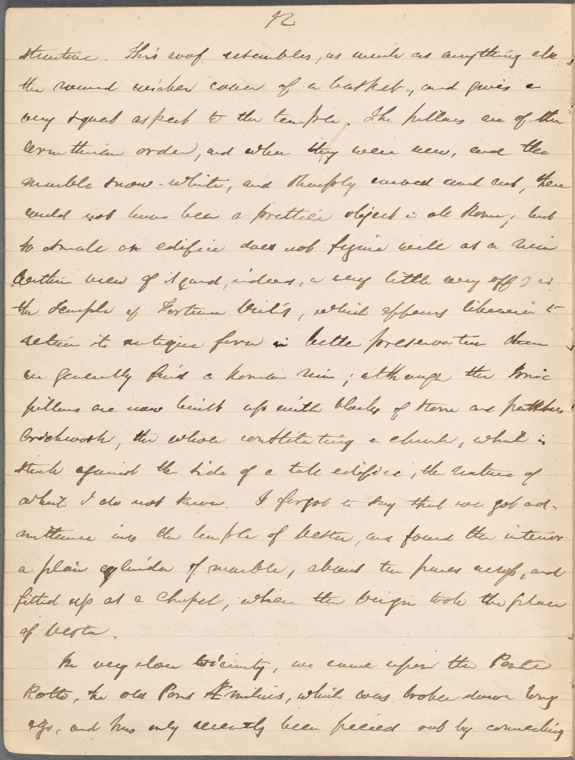 12
structure. This roof resembles, as much as anything else
the round wicker cover of a basket, and gives a
very squat aspect to the temple. The pillars are of the
Corinthian order, and when they were new, and the
marble snow-white, and sharply carved and cut, there
could not have been a prettier object in all Rome; but
so small an edifice does not figure well as a ruin
Within view of it, and, indeed, a very little way off, is
the Temple of Fortuna Virilis, which appears likewise to
retain its antique form in better preservation than
we generally find a Roman ruin; although the Ionic
pillars are now built up with blocks of stone and patches
brickwork, the whole constituting a church, which is
stuck against the side of a tall edifice, the nature of
which I do not know. I forgot to say that we got ad-
mittance into the temple of Vesta, and found the interior
a plain cylinder of marble, about ten paces across, and
fitted up as a chapel, where the Virgin took the place
of Vesta.
In very close vicinity, we came upon the Ponte
Rotto, the old Pons Æmilius, which was broken down long
ago, and has only recently been pieced out by connecting